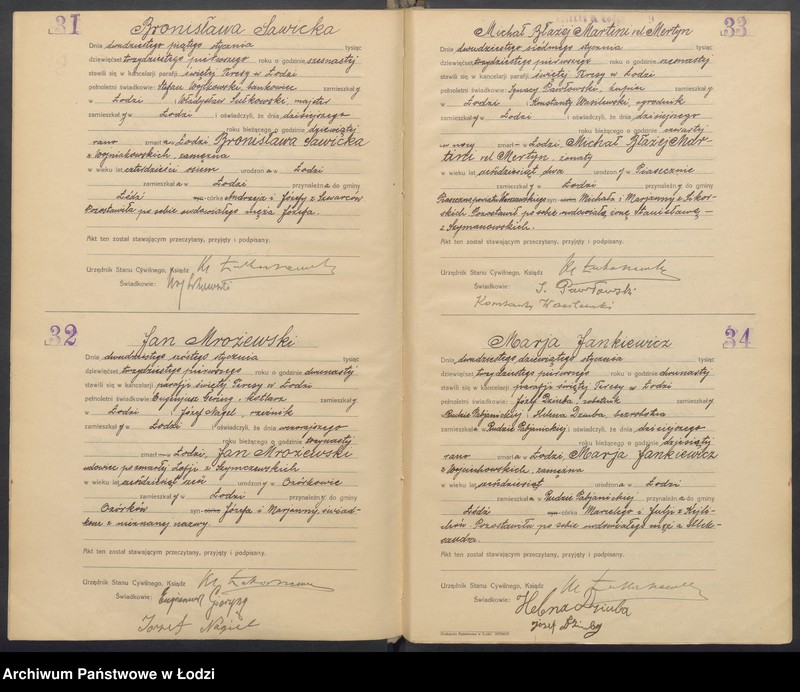 31
Bronisława Sawicka
Dnia dwudziestego piątego stycznia tysiąc
dziewięćset trzydziestego pierwszego roku o godzinie szesnastej
stawili się w kancelarji parafji świętej Teresy w Łodzi
pełnoletni świadkowie: Stefan Wojtkowski, bankowiec zamieszkały
w Łodzi i Władysław Sulkowski, majster
zamieszkały w Łodzi i oświadczyli, że dnia dzisiejszego
roku bieżącego o godzinie dziewiątej
rano zmarła w Łodzi Bronisława Sawicka
z Wojniakowskich, zamężna
w wieku lat czterdzieści osiem urodzona w Łodzi
zamieszkała w Łodzi przynależna do gminy
Łódź córka Andrzeja i Józefy z
Pozostawiła po sobie owdowiałego męża Józefa.
Akt ten został stawającym przeczytany, przyjęty i podpisany.
Urzędnik Stanu Cywilnego, Ksiądz
Świadkowie:
32
Jan Mrożewski
Dnia dwudziestego szóstego stycznia tysiąc
dziewięćset trzydziestego pierwszego roku o godzinie dwunastej
stawili się w kancelarji parafji świętej Teresy w Łodzi
pełnoletni świadkowie: Eugenjusz Gering, kotlarz zamieszkały
w Łodzi i Józef Nagel, rzeźnik
zamieszkały w Łodzi i oświadczyli, że dnia wczorajszego
roku bieżącego o godzinie trzynastej
zmarł w Łodzi, Jan Mrożewski
wdowiec po zmarłej Zofji z Szymczewskich
w wieku lat sześćdziesiąt sześć urodzony w Ozórkowie
zamieszkały w Łodzi przynależny do gminy
Ozórków syn Józefa i Marjanny, świad-
kom z nieznanej nazwy.
Akt ten został stawającym przeczytany, przyjęty i podpisany.
Urzędnik Stanu Cywilnego, Ksiądz
Świadkowie:
Józef Nagiel
33
Michał Błażej Martini vel Mertyn
Dnia dwudziestego siódmego stycznia tysiąc
dziewięćset trzydziestego pierwszego roku o godzinie szesnastej
stawili się w kancelarji parafji świętej Teresy w Łodzi
pełnoletni świadkowie: Ignacy Pawłowski, kupiec zamieszkały
w Łodzi i Konstanty Wasilewski, ogrodnik
zamieszkały w Łodzi i oświadczyli, że dnia dzisiejszego
roku bieżącego o godzinie czwartej
w nocy zmarł w Łodzi, Michał Błażej Mar-
tini vel Mertyn, żonaty
w wieku lat sześćdziesiąt dwa urodzony w Piasecznie
zamieszkały w Łodzi przynależny do gminy
Piaseczno powiat Warszawskiego syn Michała i Marjanny z Sikor-
skich Pozostawił po sobie owdowiałą żonę Stanisławę
z Szymanowskich.
Akt ten został stawającym przeczytany, przyjęty i podpisany.
Urzędnik Stanu Cywilnego, Ksiądz
Świadkowie: I. Pawłowski
Konstanty Wasilewski
34
Marja Jankiewicz
Dnia dwudziestego dziewiątego stycznia tysiąc
dziewięćset trzydziestego pierwszego roku o godzinie dwunastej
stawili się w kancelarji parafji świętej Teresy w Łodzi
pełnoletni świadkowie: Józef Dziuba, robotnik zamieszkały
w Rudzie Pabjanickiej i Helena Dziuba, bezrobotna
zamieszkała w Rudzie Pabjanickiej i oświadczyli, że dnia dzisiejszego
roku bieżącego o godzinie dziesiątej
rano zmarła w Łodzi, Marja Jankiewicz
z Wojciechowskich, zamężna
w wieku lat sześćdziesiąt urodzona w Łodzi
zamieszkała w Rudzie Pabjanickiej przynależna do gminy
Łódź córka Marcelego i Julji z
Pozostawiła po sobie owdowiałego męża Alek-
sandra.
Akt ten został stawającym przeczytany, przyjęty i podpisany.
Urzędnik Stanu Cywilnego, Ksiądz
Świadkowie: Helena Dziuba
Józef Dziuba
Archiwum Państwowe w Łodzi